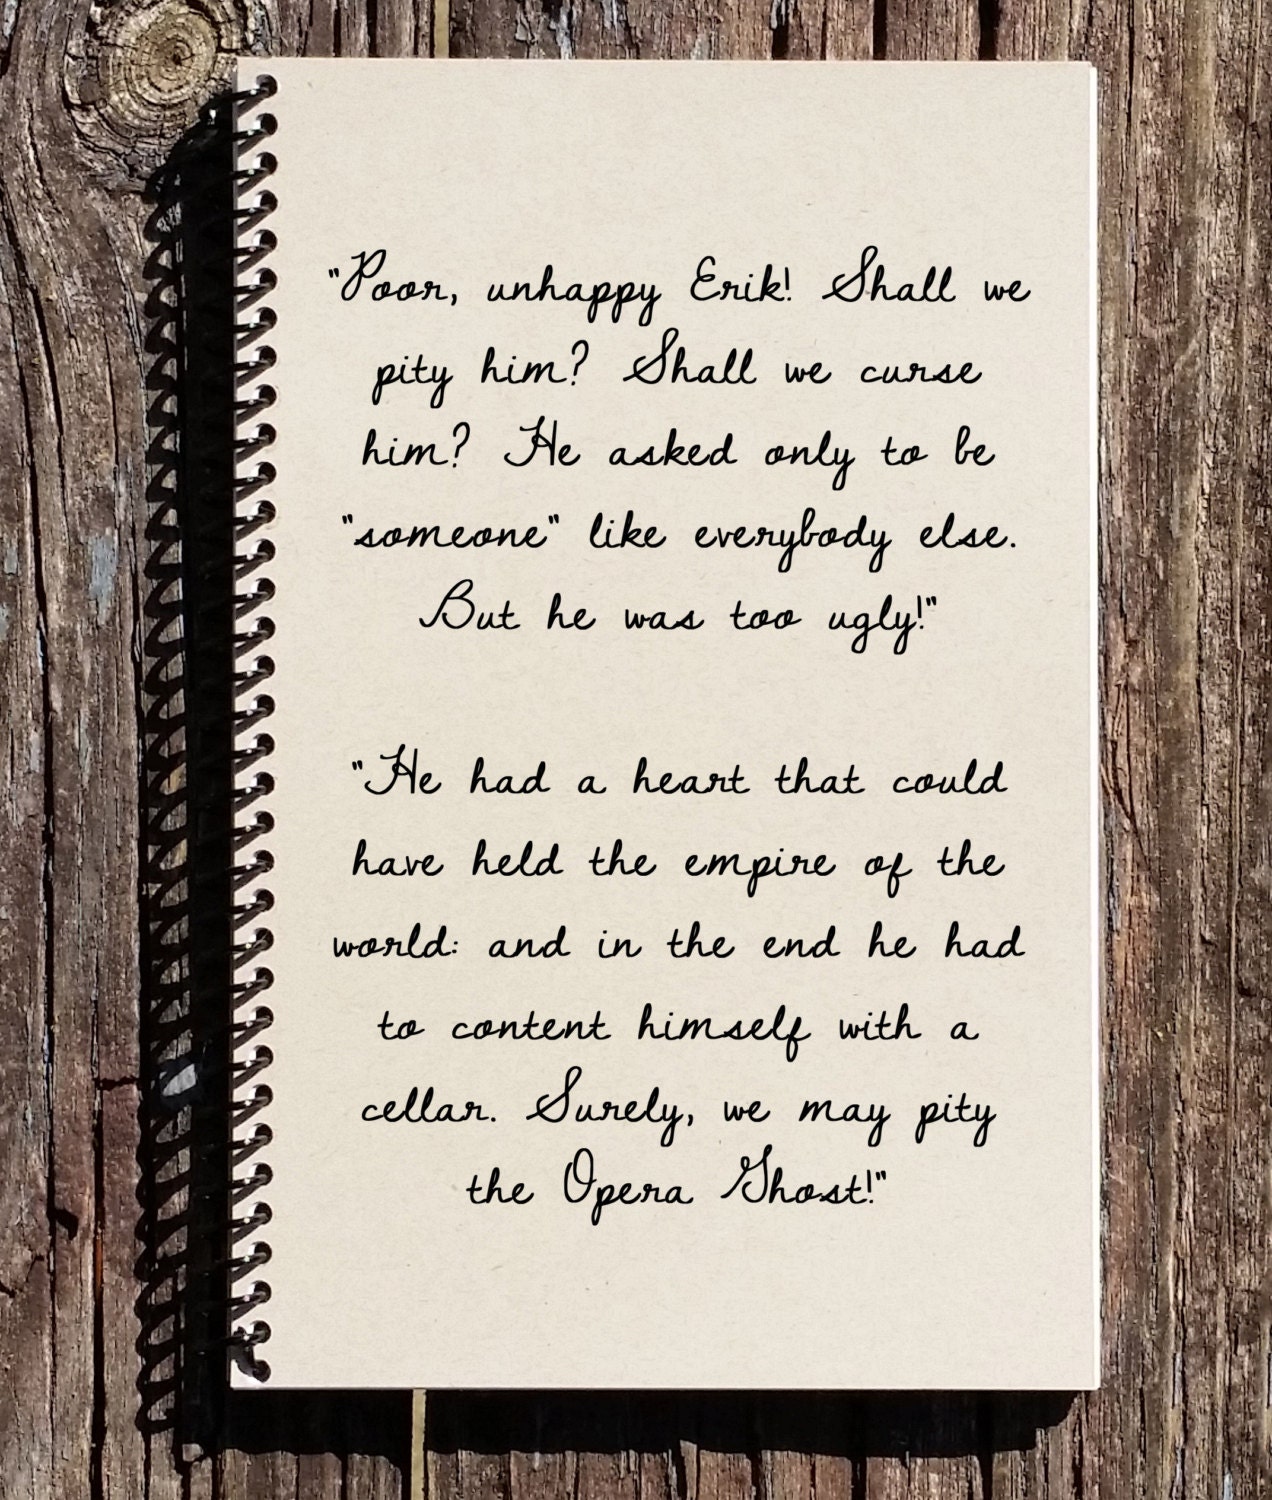 "Poor, unhappy Erik! Shall we
pity him? Shall we curse
him? He asked only to be
"someone" like everybody else.
But he was too ugly!"
"He had a heart that could
have held the empire of the
world: and in the end he had
to content himself with a
cellar. Surely, we may pity
the Opera Ghost!"